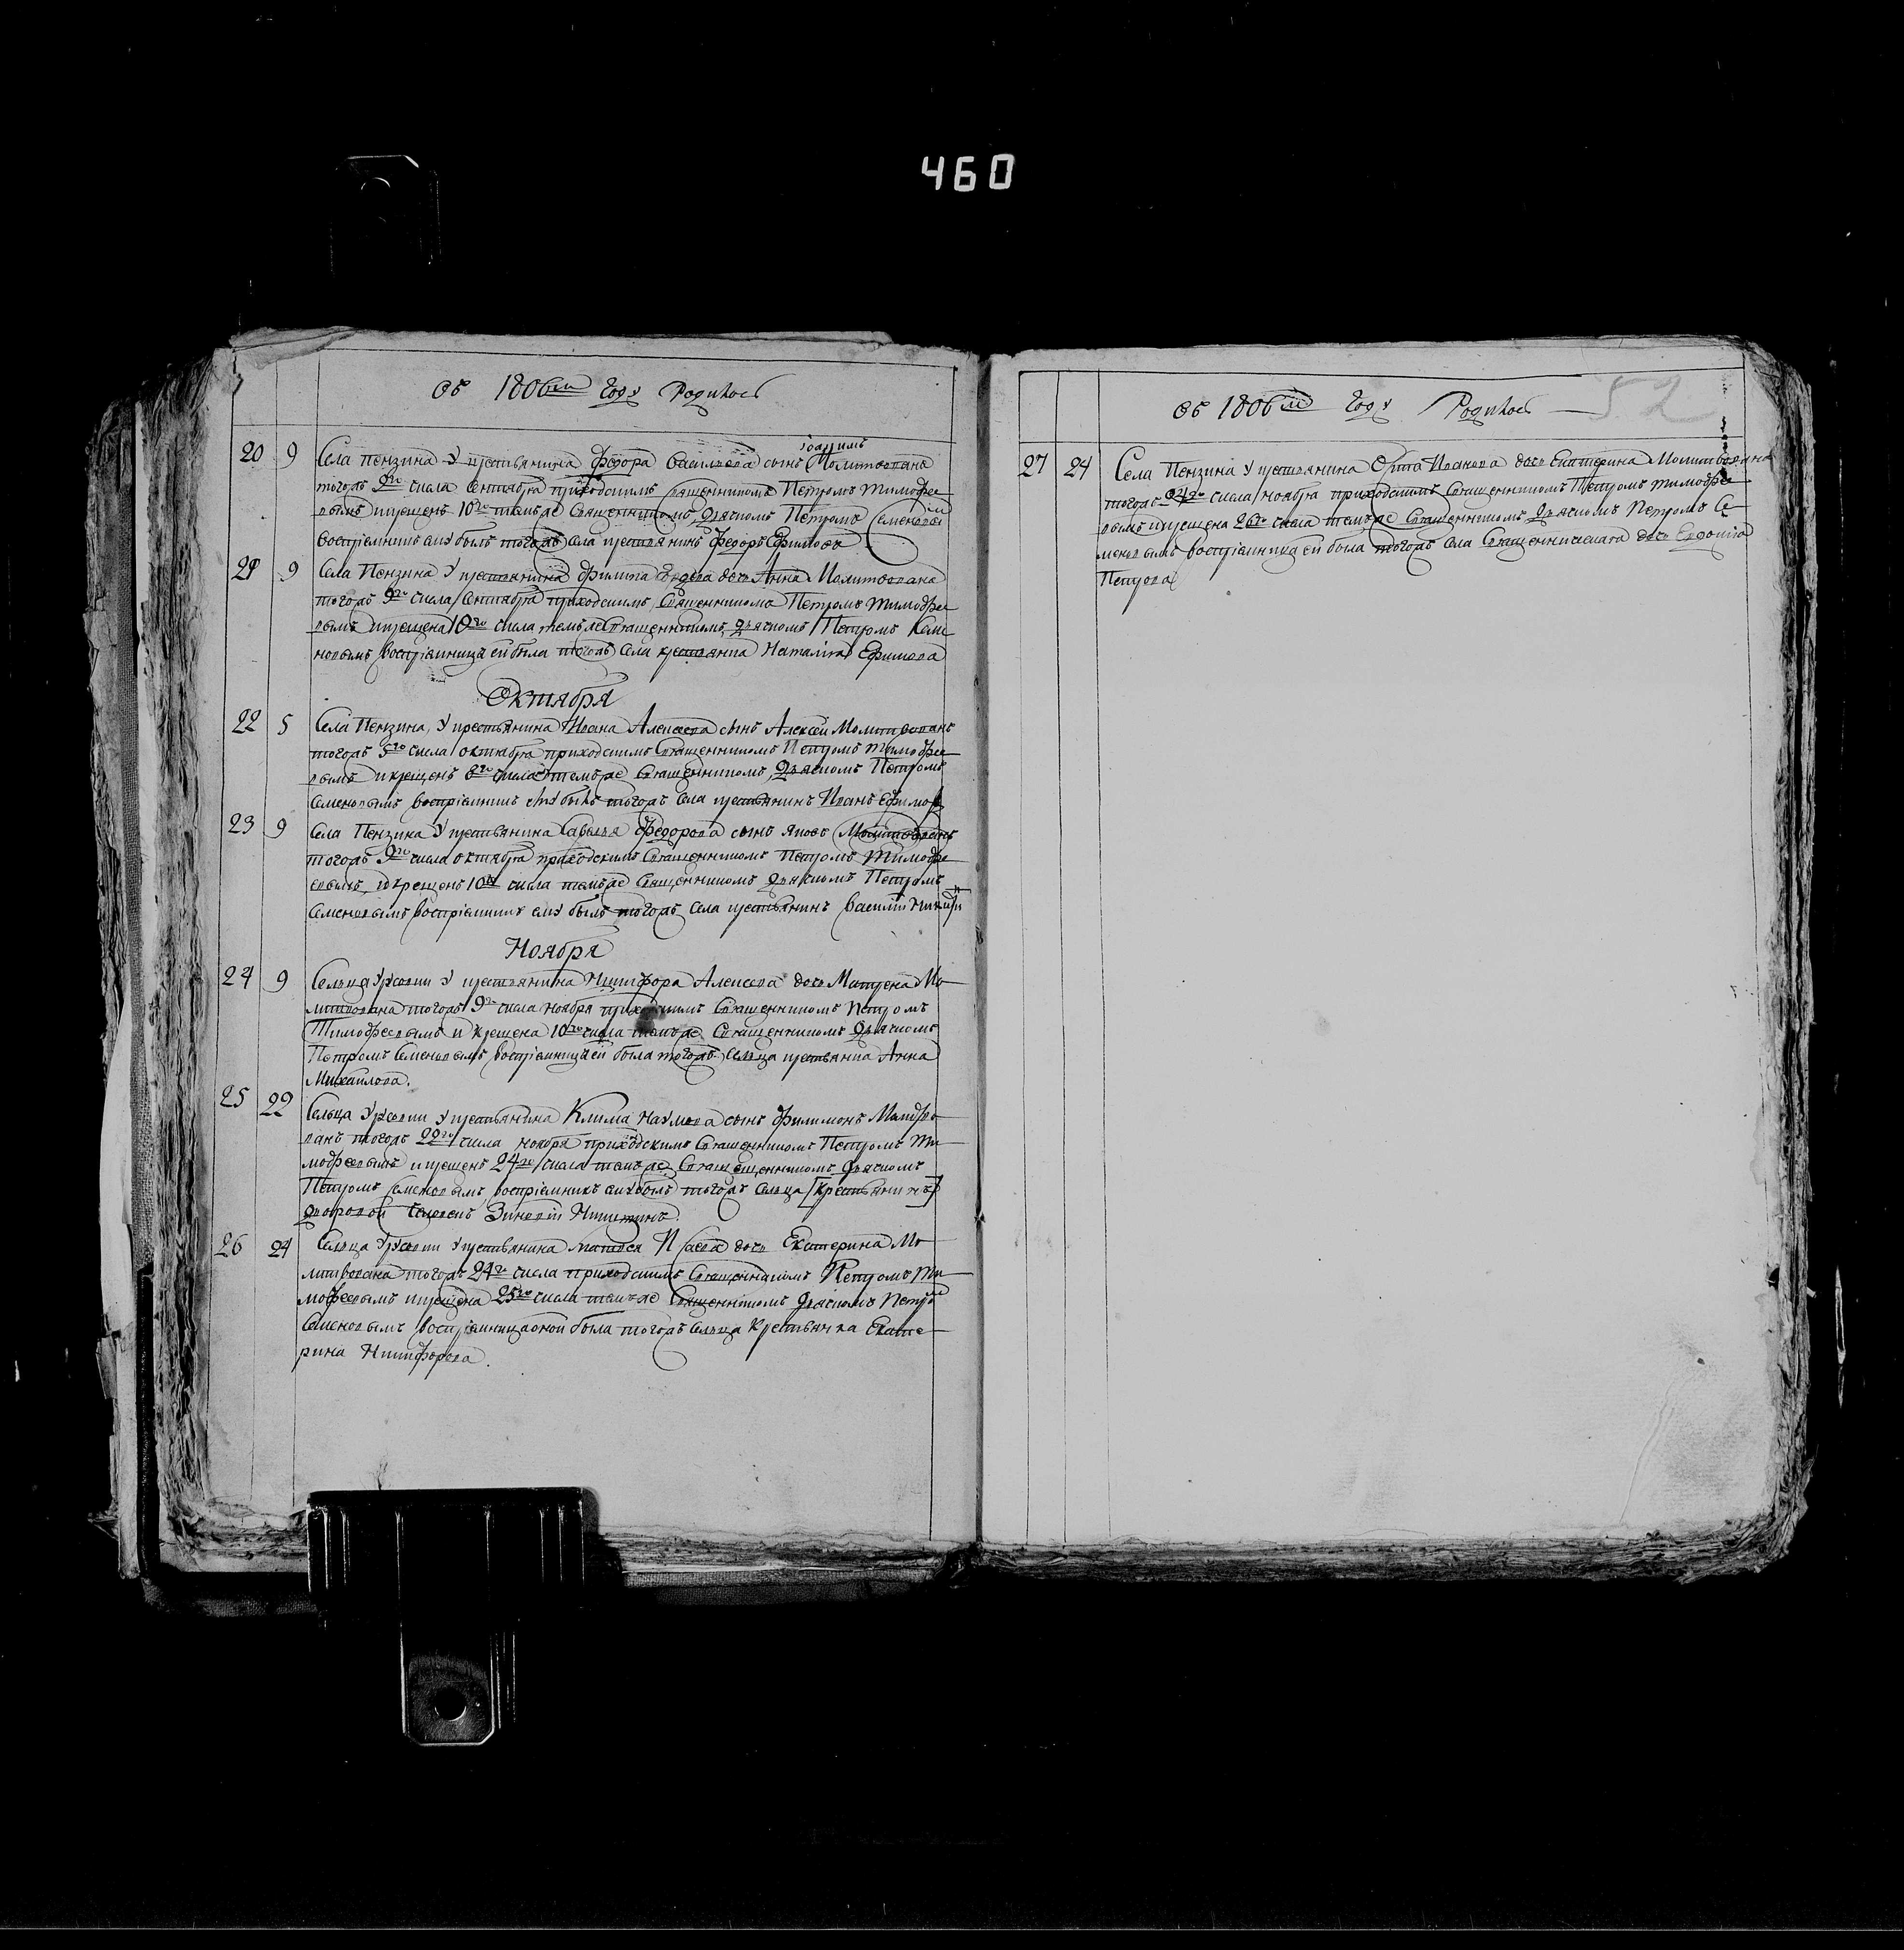 460
Въ 1806м году Родилось
20 9 Села Пензина У крестьянина Федора Васильева сынъ Иоакимъ Молитвованъ
тогожъ 9го числа Сентября приходскимъ священникомъ Петромъ Тимофее
вымъ крещенъ 10го темъже Священникомъ, дьячкомъ Петромъ Семеновы
воспріемникъ ему былъ тогожъ села крестьянинъ Федоръ Ефимовъ
21 9 Села Пензина У крестьянина Филипа дочь Анна Молитвована
тогожъ 9го числа Сентября приходскимъ Священникомъ Петромъ Тимофее
вымъ крещена 10го числа темъже Священникомъ, дьячкомъ Петромъ Семе
новымъ воспріемница ей была тогожъ Села крестьянка Наталія Ефимова
Октября
22 5 Села Пензина, У крестьянина Ивана Алексеева сынъ Алексей Молитвованъ
тогожъ 5го числа октября приходскимъ Священникомъ Петромъ Тимофее
вымъ и крещенъ 6го числа темъже Священникомъ, Дьячкомъ Петромъ
Семеновымъ воспріемникъ ему былъ тогожъ Села крестьянинъ Иванъ Ефимов
23 9 Села Пензина У крестьянина Савелья Федорова сынъ Яковъ Молитвованъ
тогожъ 9го числа октября приходскимъ Священникомъ Петромъ Тимофе
евымъ, и крещенъ 10го числа темъже Священникомъ Дьячкомъ Петромъ
Семеновымъ воспріемникъ ему былъ тогожъ Села крестьянинъ Василій
Ноября
24 9 Сельца У крестьянина Никифора Алексеева дочь Матрена Мо
литвована тогожъ 9го числа ноября приходскимъ Священникомъ Петромъ
Тимофеевымъ и крещена 10го числа темъже Священникомъ Дьячкомъ
Петромъ Семеновымъ воспріемница ей была тогожъ Сельца крестьянка Анна
Михаилова.
25 22 Сельца У крестьянина Клима Наумова сынъ Филимонъ Молитво
ванъ тогожъ числа ноября приходскимъ Священникомъ Петромъ Ти
мофеевымъ и крещенъ 24го числа темъже Священникомъ Дьячкомъ
Петромъ Семеновымъ, воспріемникъ ему былъ тогожъ Сельца [крестьянинъ]
дворовой Зиновій Никитинъ.
26 24 Сельца У крестьянина дочь Екатерина Мо
литвована тогожъ 24го числа приходскимъ Священникомъ Петромъ Ти
мофеевымъ крещена 25го числа темъже Священникомъ Дьячкомъ Петро
Семеновымъ воспріемница оной была тогожъ Сельца Крестьянка Екате
рина Никифорова.
Въ 1806м году Родилось 52
27 24 Села Пензина У крестьянина Ивана дочь Екатерина Молитвована
тогожъ 24го числа ноября приходскимъ Священникомъ Петромъ Тимофее
вымъ и крещена 26го числа темъже Священникомъ Дьячкомъ Петромъ Се
меновымъ воспріемница ей была тогожъ Села Священническая дочь Евдокия
Петрова